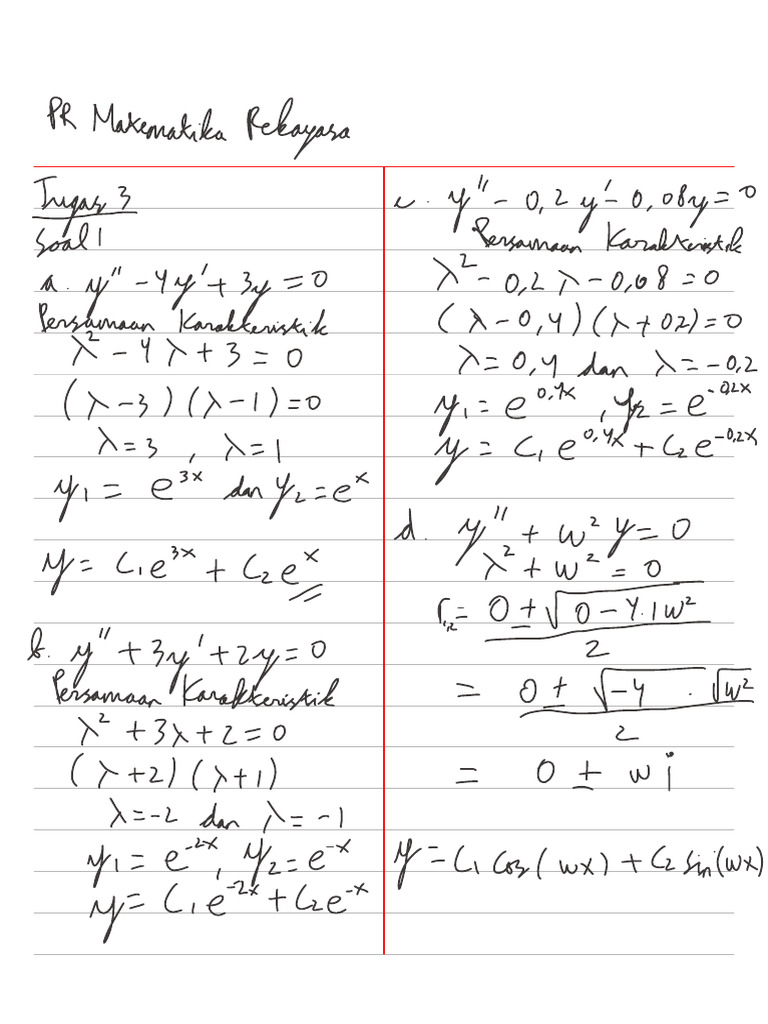 PR Matematika Rekayasa
Tugas 3
Soal 1
a. y'' - 4y' + 3y = 0
Persamaan Karakteristik
λ² - 4λ + 3 = 0
(λ-3)(λ-1)=0
λ=3 , λ=1
y₁ = e³ˣ dan y₂ = eˣ
y = C₁e³ˣ + C₂eˣ
b. y'' + 3y' + 2y = 0
Persamaan Karakteristik
λ² + 3λ + 2 = 0
(λ+2)(λ+1)
λ=-2 dan λ=-1
y₁ = e⁻²ˣ, y₂ = e⁻ˣ
y = C₁e⁻²ˣ + C₂e⁻ˣ
c. y'' - 0,2 y' - 0,08y = 0
Persamaan Karakteristik
λ² - 0,2 λ - 0,08 = 0
(λ-0,4)(λ+02)=0
λ=0,4 dan λ=-0,2
y₁ = e^0,4x , y₂ = e^-0,2x
y = C₁ e^0,4x + C₂ e^-0,2x
d. y'' + w² y = 0
λ² + w² = 0
r₁,₂ = 0 ± √0 - 4.1w²
2
= 0 ± √-4 . √w²
2
= 0 ± w i
y = C₁ cos(wx) + C₂ sin(wx)